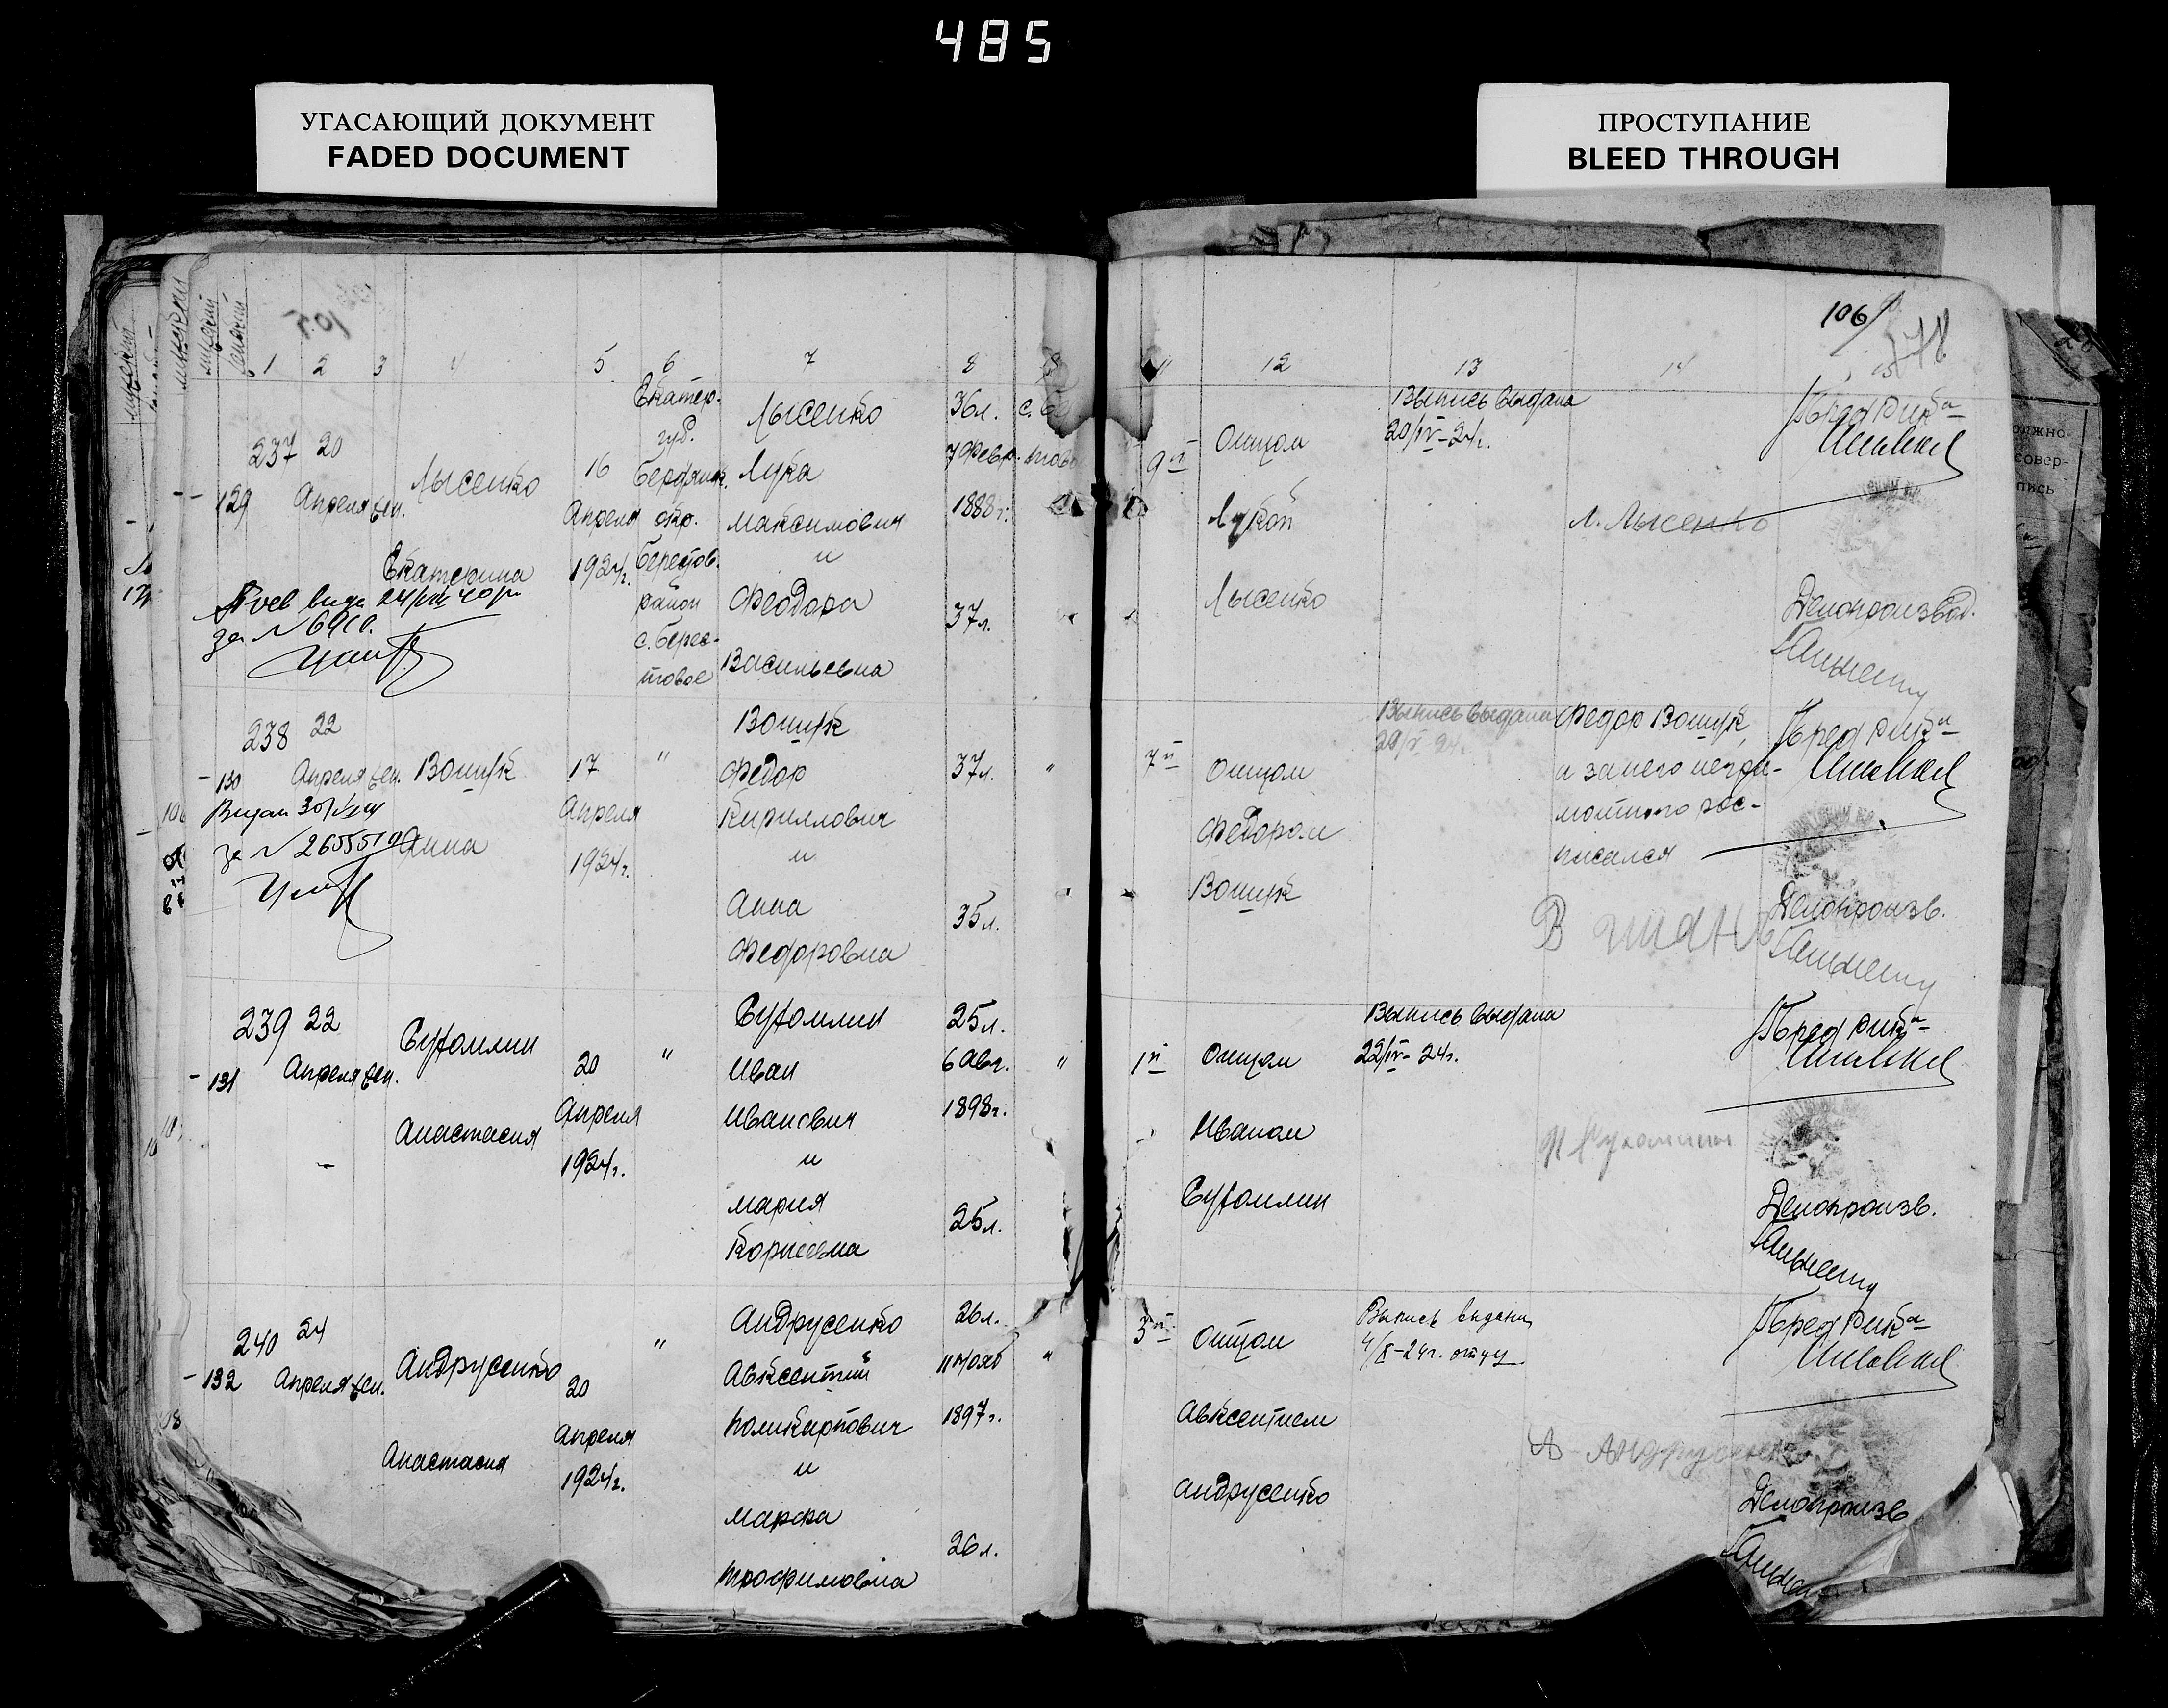 485
УГАСАЮЩИЙ ДОКУМЕНТ
FADED DOCUMENT
ПРОСТУПАНИЕ
BLEED THROUGH
106
1 2 3 4 5 6 7 8
11 12 13 14 15
237 20
129 Апреля жен.
Лысенко
Екатерина
16
Апреля
1924г.
Екатер.
губ.
Бердянск.
окр.
Берестов.
район
с. Берес-
товое
Лысенко
Лука
Максимович
и
Феодора
Васильевна
36л.
7 февр.
1888г.
37л.
9й
Отцом
Лукой
Лысенко
Выпись выдана
20/IV-24г.
Л. Лысенко
Пред Рика
Делопроизвод.
238 22
130 Апреля жен.
Вощук
Анна
17
Апреля
1924г.
"
Вощук
Федор
Кириллович
и
Анна
Федоровна
37л.
35л.
"
7й
Отцом
Федором
Вощук
Выпись выдана
Федор Вощук,
и за него негра-
мотного рос-
писался
Пред Рика
Делопроизв.
239 22
131 Апреля жен.
Сухомлин
Анастасия
20
Апреля
1924г.
"
Сухомлин
Иван
Иванович
и
Мария
Корнеевна
25л.
6 Авг.
1898г.
25л.
"
1й
Отцом
Иваном
Сухомлин
Выпись выдана
22/IV-24г.
Пред Рика
Делопроизв.
240 24
132 Апреля жен.
Андрусенко
Анастасия
20
Апреля
1924г.
"
Андрусенко
Авксентий
Поликарпович
и
Марфа
Трофимовна
26л.
11 Нояб
1897г.
26л.
"
3й
Отцом
Авксентием
Андрусенко
Выпись выдана
отцу
А Андрусенко
Пред Рика
Делопроизв